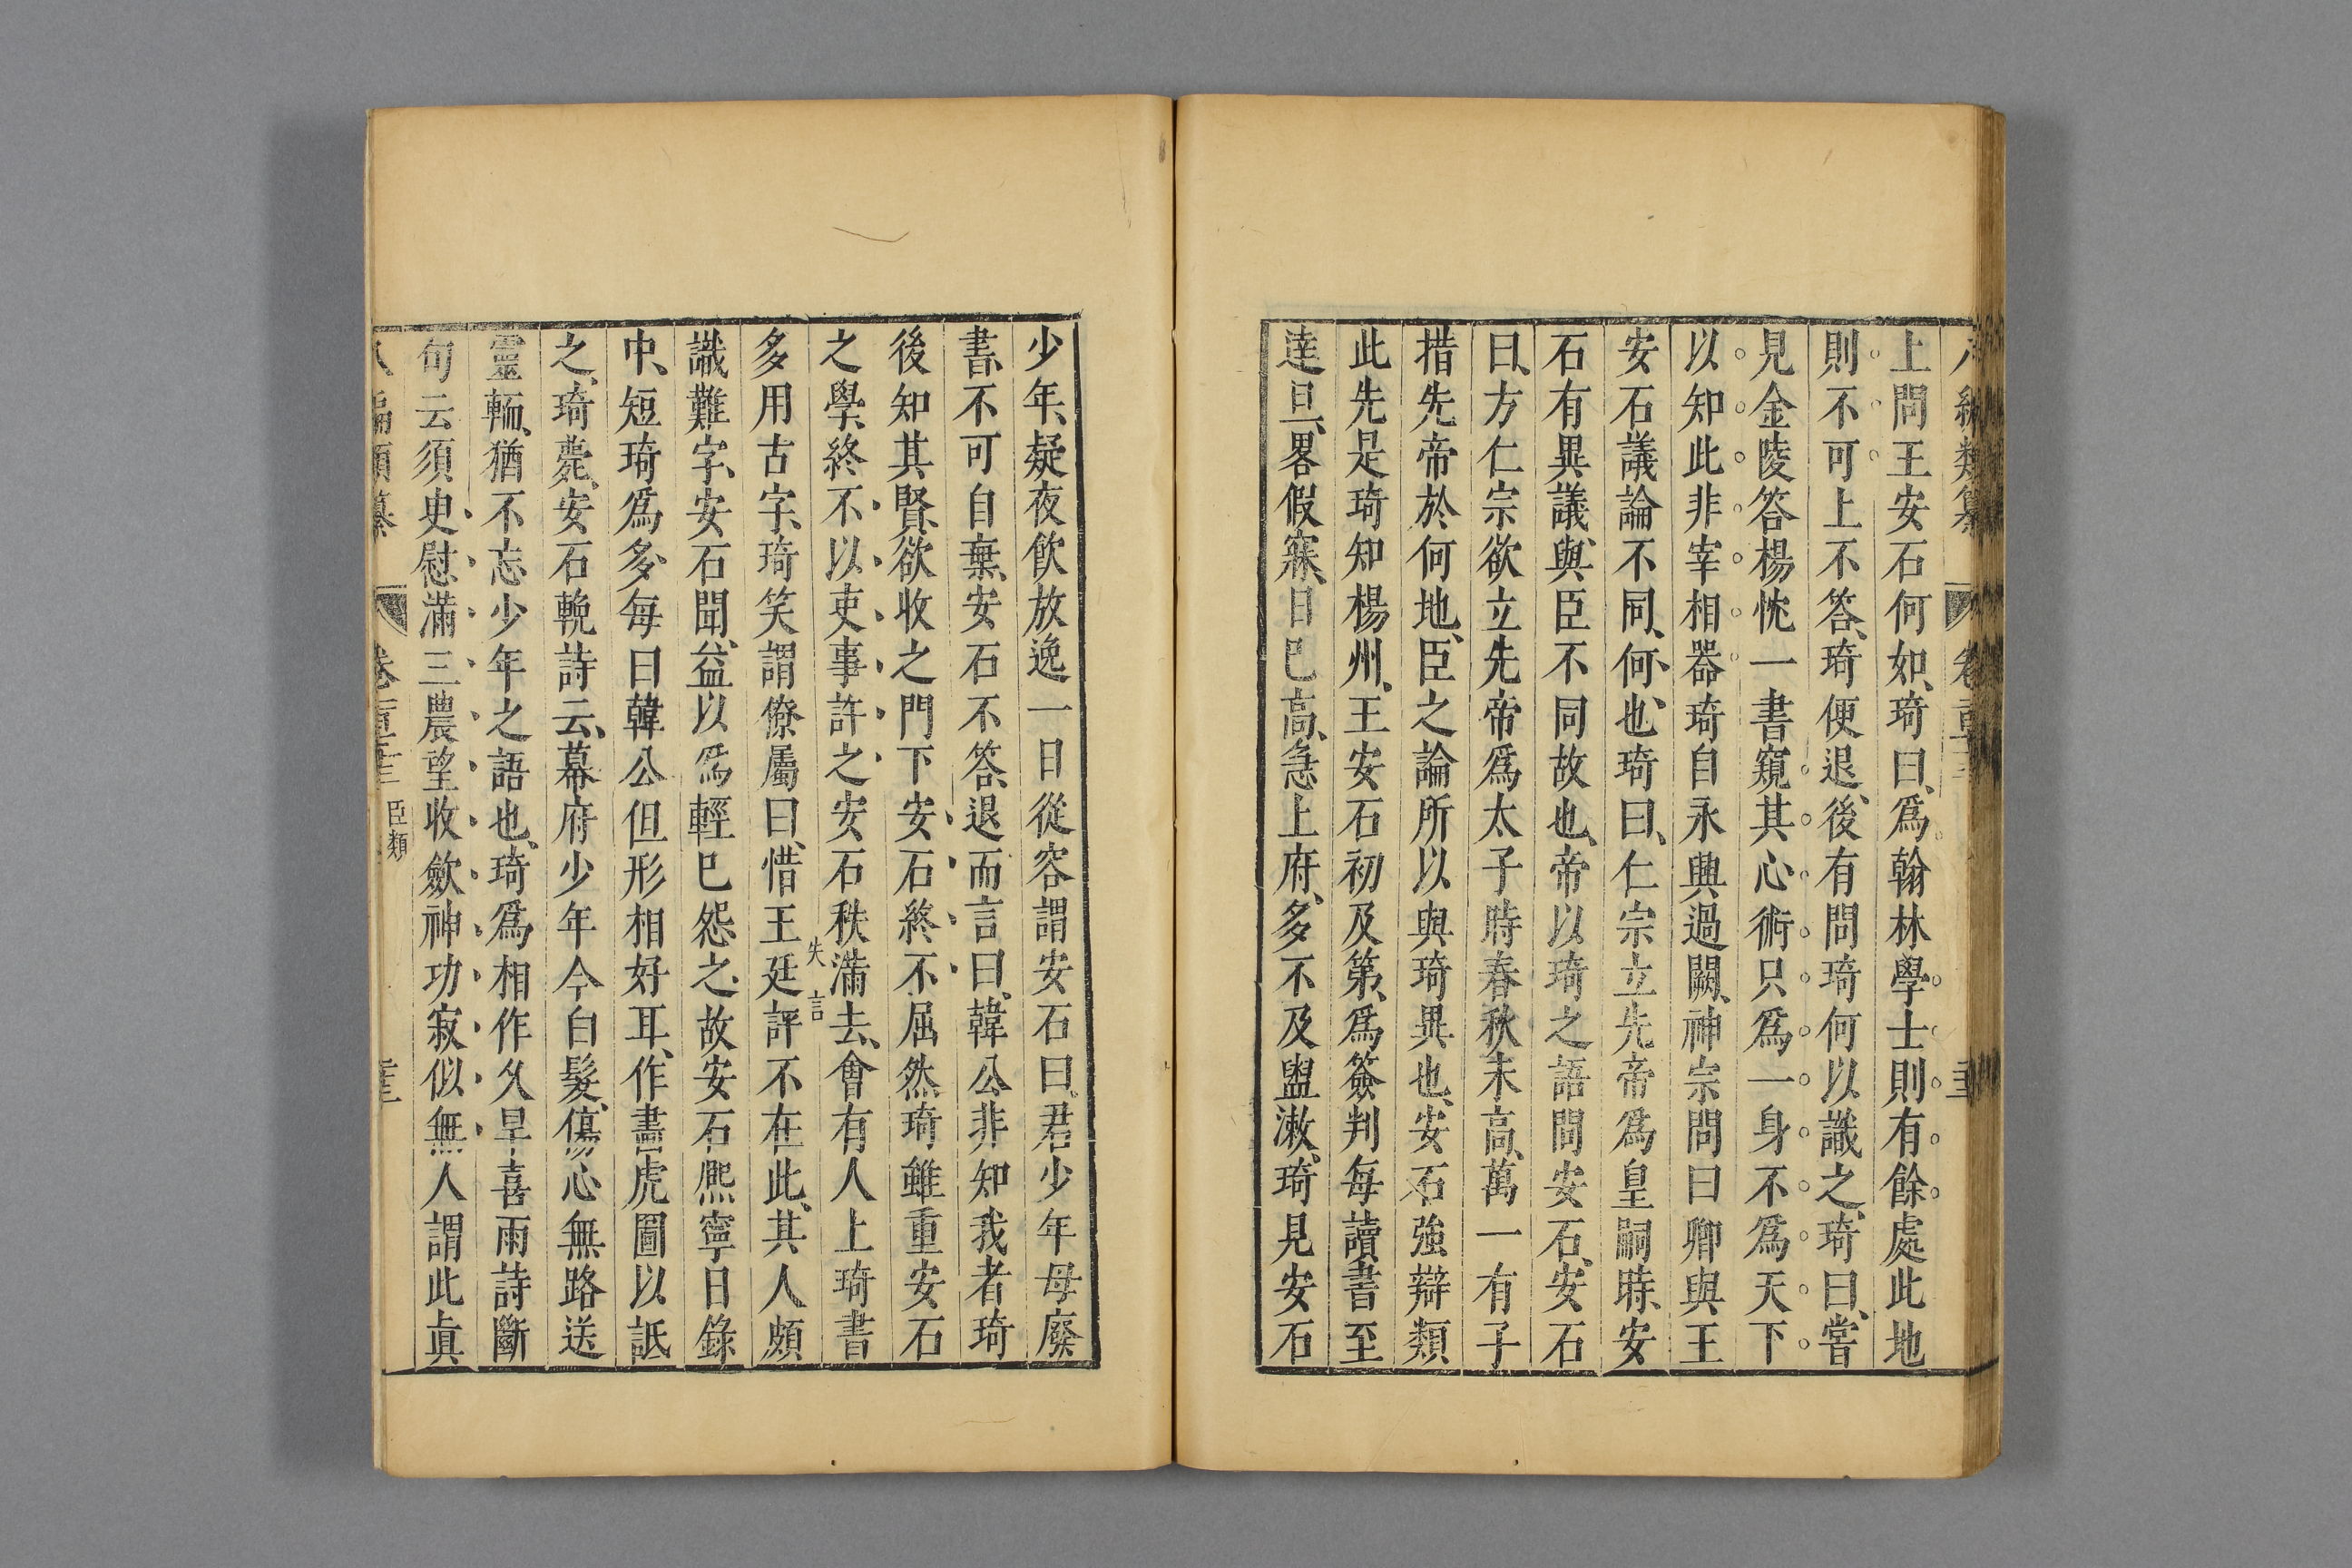 上問王安石何如、琦曰、爲翰林學士則有餘處此地
則不可上不答、琦便退、後有問琦何以識之、琦曰、嘗
見金陵答楊忱一書窺其心術只爲一身不爲天下
以知此非宰相器琦自永興過闕、神宗問曰卿與王
安石議論不同、何也、琦曰、仁宗立先帝爲皇嗣時、安
石有異議、與臣不同故也、帝以琦之語問安石、安石
曰、方仁宗欲立先帝爲太子時春秋未高、萬一有子
措先帝於何地、臣之論所以與琦異也、安石強辯類
此先是琦知楊州、王安石初及第、爲簽判每讀書至
達旦、畧假寐、日巳高、急上府、多不及盥漱、琦見安石
少年、疑夜飲放逸一日從容謂安石曰君少年毋廢
書、不可自棄、安石不答、退而言曰、韓公非知我者琦
後知其賢、欲收之門下安石終不屈然琦雖重安石
之學、終不以吏事許之安石秩滿去、會有人上琦書
失言
多用古字、琦笑謂僚屬曰、惜王廷評不在此、其人頗
識難字、安石聞、益以爲輕巳怨之故安石熈寧日錄
中、短琦爲多、每曰韓公但形相好耳、作畫虎圖以詆
之、琦薨、安石輓詩云、幕府少年今白髮、傷心無路送
靈輀、猶不忘少年之語也、琦爲相作久旱喜雨詩斷
句云須臾慰滿三農望收歛神功寂似無人謂此眞
臣類